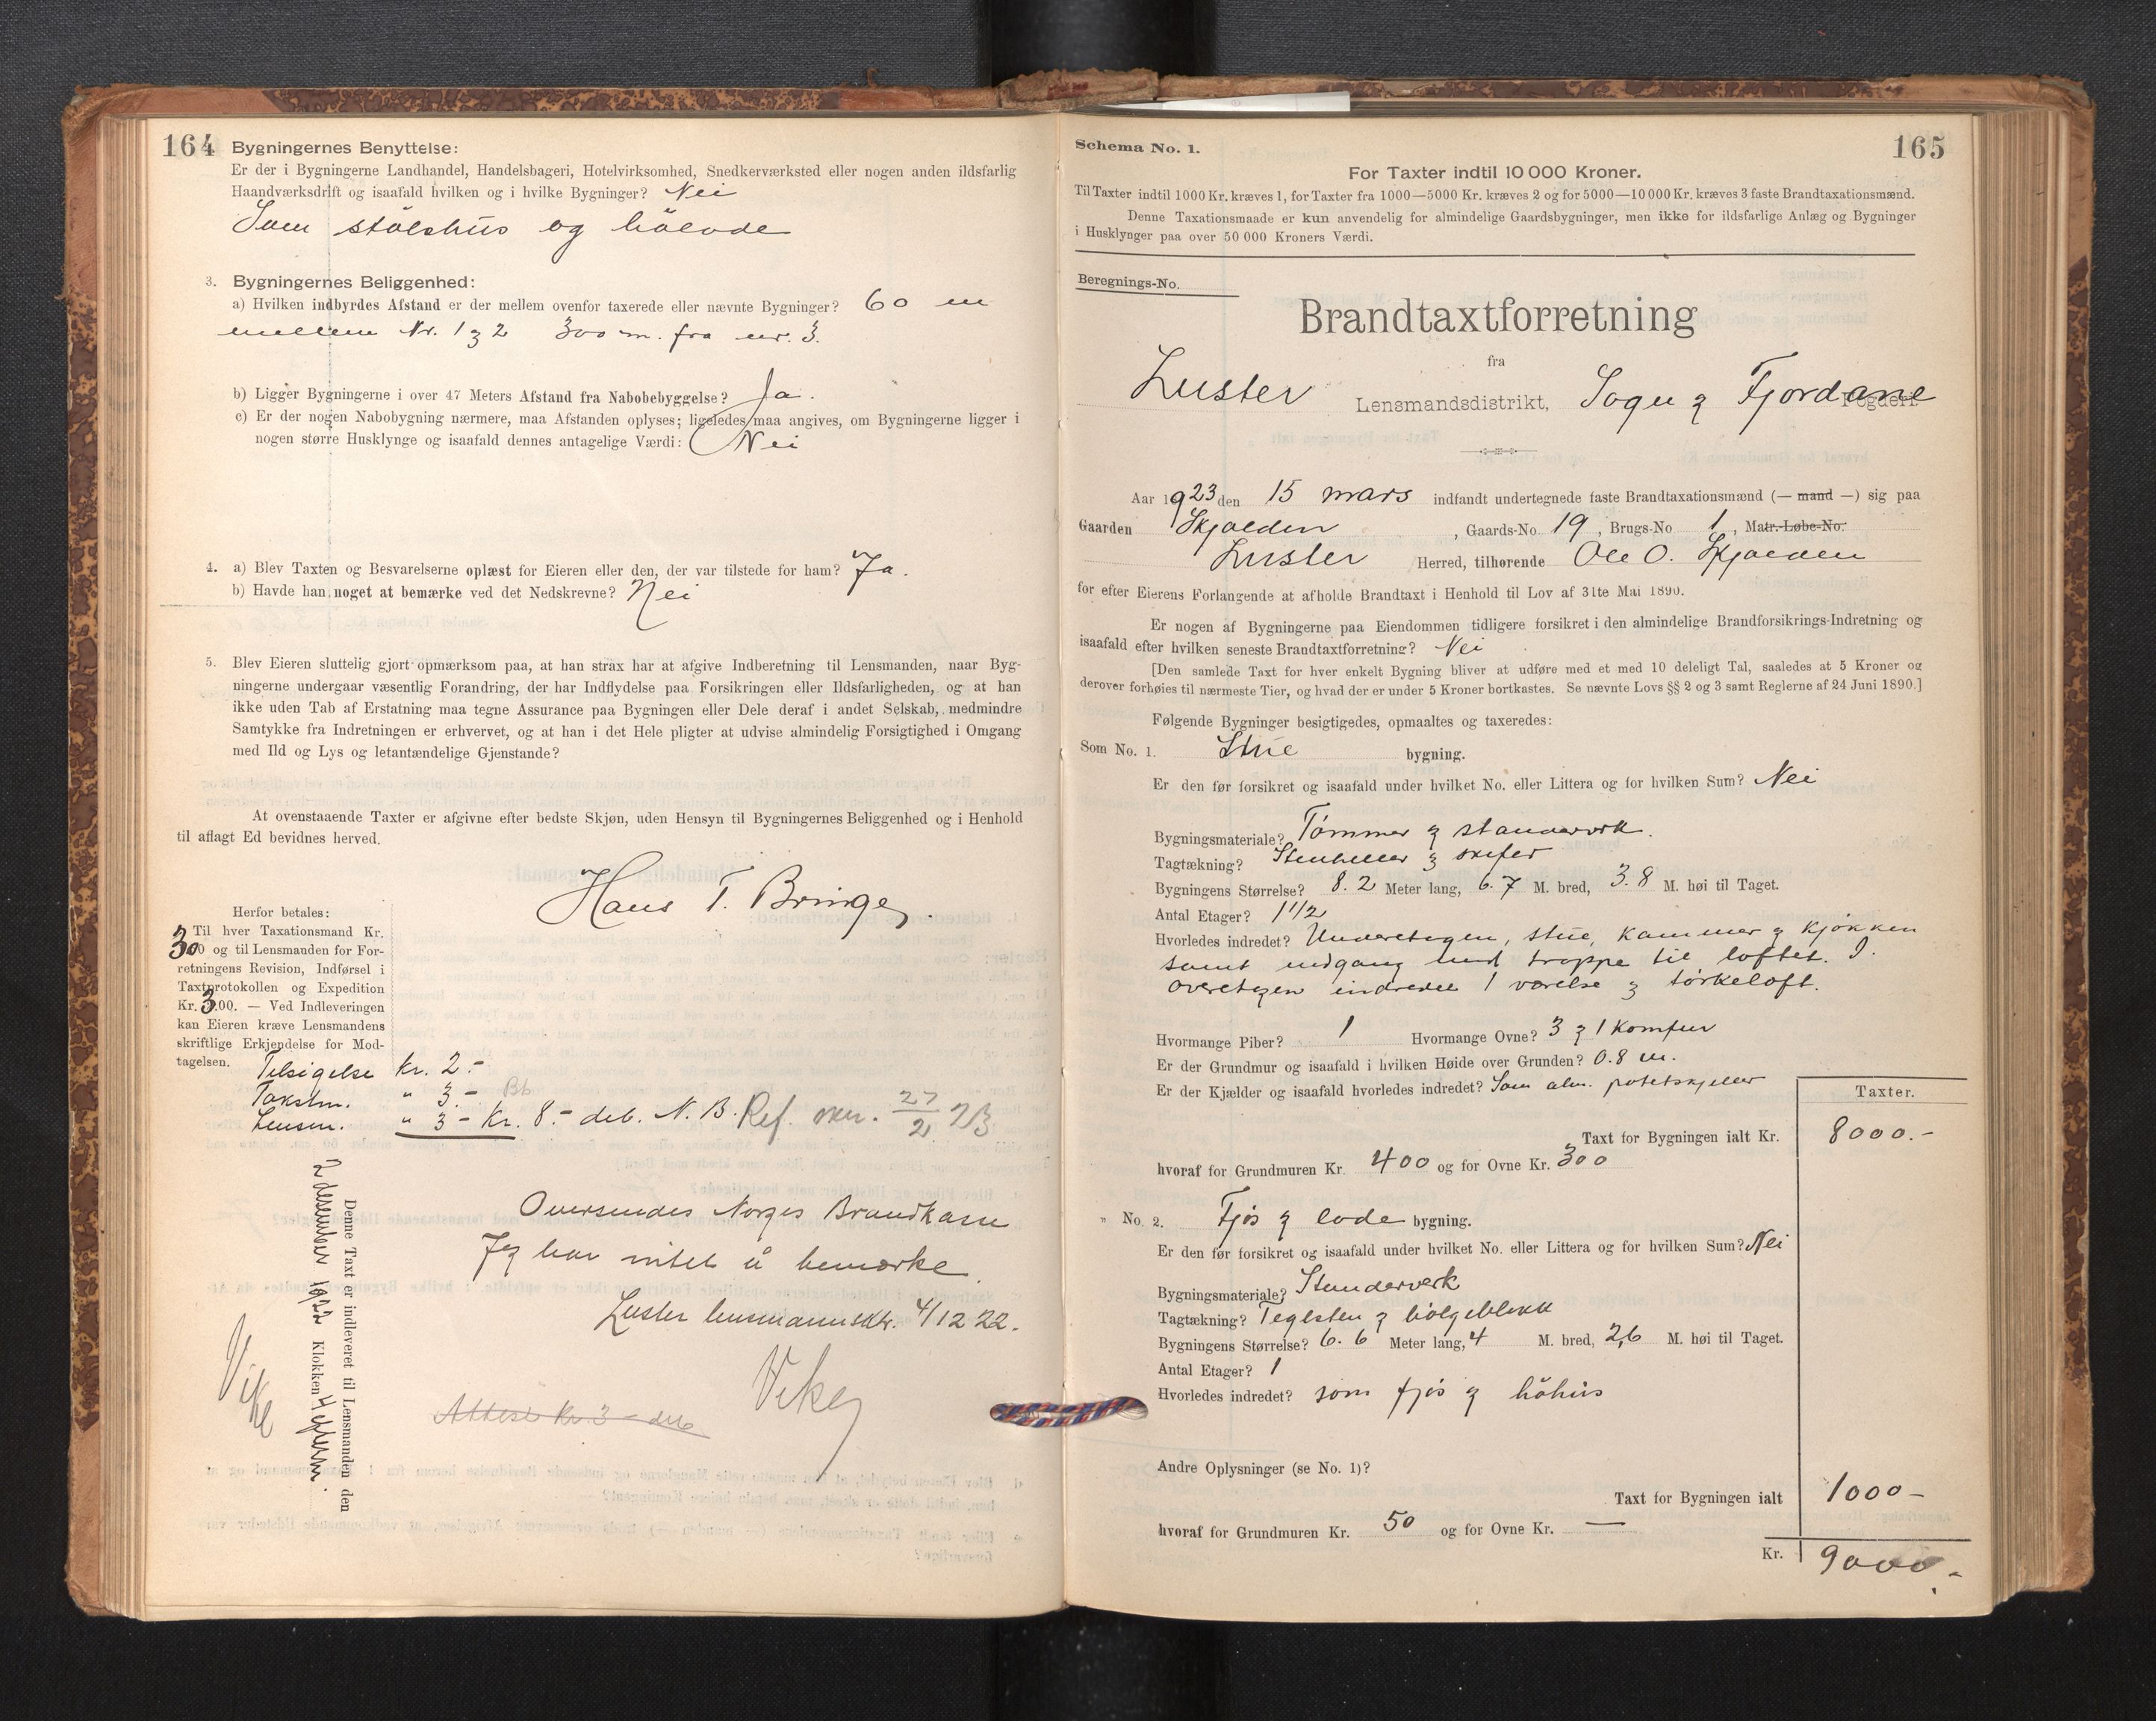 164
Bygningernes Benyttelse:
Er der i Bygningerne Landhandel, Handelsbageri, Hotelvirksomhed, Snedkerværksted eller nogen anden ildsfarlig
Haandværksdrift og isaafald hvilken og i hvilke Bygninger? Nei
Som stölshus og hölode
3. Bygningernes Beliggenhed:
a) Hvilken indbyrdes Afstand er der mellem ovenfor taxerede eller nævnte Bygninger? 60 m
mellem Nr. 1 & 2 300 m. fra nr. 3.
b) Ligger Bygningerne i over 47 Meters Afstand fra Nabobebyggelse? Ja.
c) Er der nogen Nabobygning nærmere, maa Afstanden oplyses; ligeledes maa angives, om Bygningerne ligger i
nogen større Husklynge og isaafald dennes antagelige Værdi: Nei
4. a) Blev Taxten og Besvarelserne oplæst for Eieren eller den, der var tilstede for ham? Ja.
b) Havde han noget at bemærke ved det Nedskrevne? Nei
5. Blev Eieren sluttelig gjort opmærksom paa, at han strax har at afgive Indberetning til Lensmanden, naar Byg-
ningerne undergaar væsentlig Forandring, der har Indflydelse paa Forsikringen eller Ildsfarligheden, og at han
ikke uden Tab af Erstatning maa tegne Assurance paa Bygningen eller Dele deraf i andet Selskab, medmindre
Samtykke fra Indretningen er erhvervet, og at han i det Hele pligter at udvise almindelig Forsigtighed i Omgang
med Ild og Lys og letantændelige Gjenstande?
At ovenstaaende Taxter er afgivne efter bedste Skjøn, uden Hensyn til Bygningernes Beliggenhed og i Henhold
til aflagt Ed bevidnes herved.
Hans T. Bringe
Herfor betales:
Til hver Taxationsmand Kr.
3.00 og til Lensmanden for For-
retningens Revision, Indførsel i
Taxtprotokollen og Expedition
Kr. 3.00. — Ved Indleveringen
kan Eieren kræve Lensmandens
skriftlige Erkjendelse for Mod-
tagelsen.
Tilsigelse Kr. 2.-
Takstm. " 3.-
Lensm. " 3.- Kr. 8.- deb. N. B. Ref. 27/2 23
Denne Taxt er indleveret til Lensmanden den
2 desember 1922 Klokken 4 efterm.
Vike
Oversendes Norges Brandkasse
Jeg har intet å bemærke.
Luster lensmannsktr. 4/12 22.
Vike
Attest Kr. 3 - deb
165
Schema No. 1.
For Taxter indtil 10 000 Kroner.
Til Taxter indtil 1000 Kr. kræves 1, for Taxter fra 1000—5000 Kr. kræves 2 og for 5000—10 000 Kr. kræves 3 faste Brandtaxationsmænd.
Denne Taxationsmaade er kun anvendelig for almindelige Gaardsbygninger, men ikke for ildsfarlige Anlæg og Bygninger
i Husklynger paa over 50 000 Kroners Værdi.
Beregnings-No.
Brandtaxtforretning
fra
Luster Lensmandsdistrikt, Sogn & Fjordane Fogderi.
Aar 1923 den 15 mars indfandt undertegnede faste Brandtaxationsmænd (— mand —) sig paa
Gaarden Skjolden, Gaards-No 19, Brugs-No 1, Matr.-Løbe-No.
Luster Herred, tilhørende Ole O. Skjolden
for efter Eierens Forlangende at afholde Brandtaxt i Henhold til Lov af 31te Mai 1890.
Er nogen af Bygningerne paa Eiendommen tidligere forsikret i den almindelige Brandforsikrings-Indretning og
isaafald efter hvilken seneste Brandtaxtforretning? Nei
[Den samlede Taxt for hver enkelt Bygning bliver at udføre med et med 10 deleligt Tal, saaledes at 5 Kroner og
derover forhøies til nærmeste Tier, og hvad der er under 5 Kroner bortkastes. Se nævnte Lovs §§ 2 og 3 samt Reglerne af 24 Juni 1890.]
Følgende Bygninger besigtigedes, opmaaltes og taxeredes:
Som No. 1. Stue bygning.
Er den før forsikret og isaafald under hvilket No. eller Littera og for hvilken Sum? Nei
Bygningsmateriale? Tömmer & standerverk.
Tagtækning? Stenheller & skifer
Bygningens Størrelse? 8.2 Meter lang, 6.7 M. bred, 3.8 M. høi til Taget.
Antal Etager? 1 1/2
Hvorledes indredet? Underetagen, stue, kammer & kjökken
samt indgang med trappe til loftet. I
overetagen indredet 1 værelse & törkeloft.
Hvormange Piber? 1 Hvormange Ovne? 3 & 1 Komfur
Er der Grundmur og isaafald i hvilken Høide over Grunden? 0.8 m.
Er der Kjælder og isaafald hvorledes indredet? Som alm. potetskjeller
Taxter.
Taxt for Bygningen ialt Kr. 8000.-
hvoraf for Grundmuren Kr. 400 og for Ovne Kr. 300
" No. 2. Fjös & lode bygning.
Er den før forsikret og isaafald under hvilket No. eller Littera og for hvilken Sum? Nei
Bygningsmateriale? Standerverk
Tagtækning? Teglsten & bölgeblekk
Bygningens Størrelse? 6.6 Meter lang, 4 M. bred, 2,6 M. høi til Taget.
Antal Etager? 1
Hvorledes indredet? som fjös & höhus
Andre Oplysninger (se No. 1)?
Taxt for Bygningen ialt 1000-
hvoraf for Grundmuren Kr. 50 og for Ovne Kr. —
Kr. 9000.-